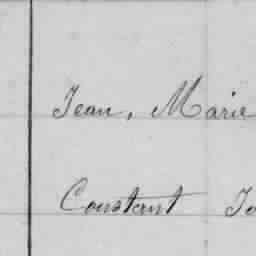 Jean, Marie
Constant Jo